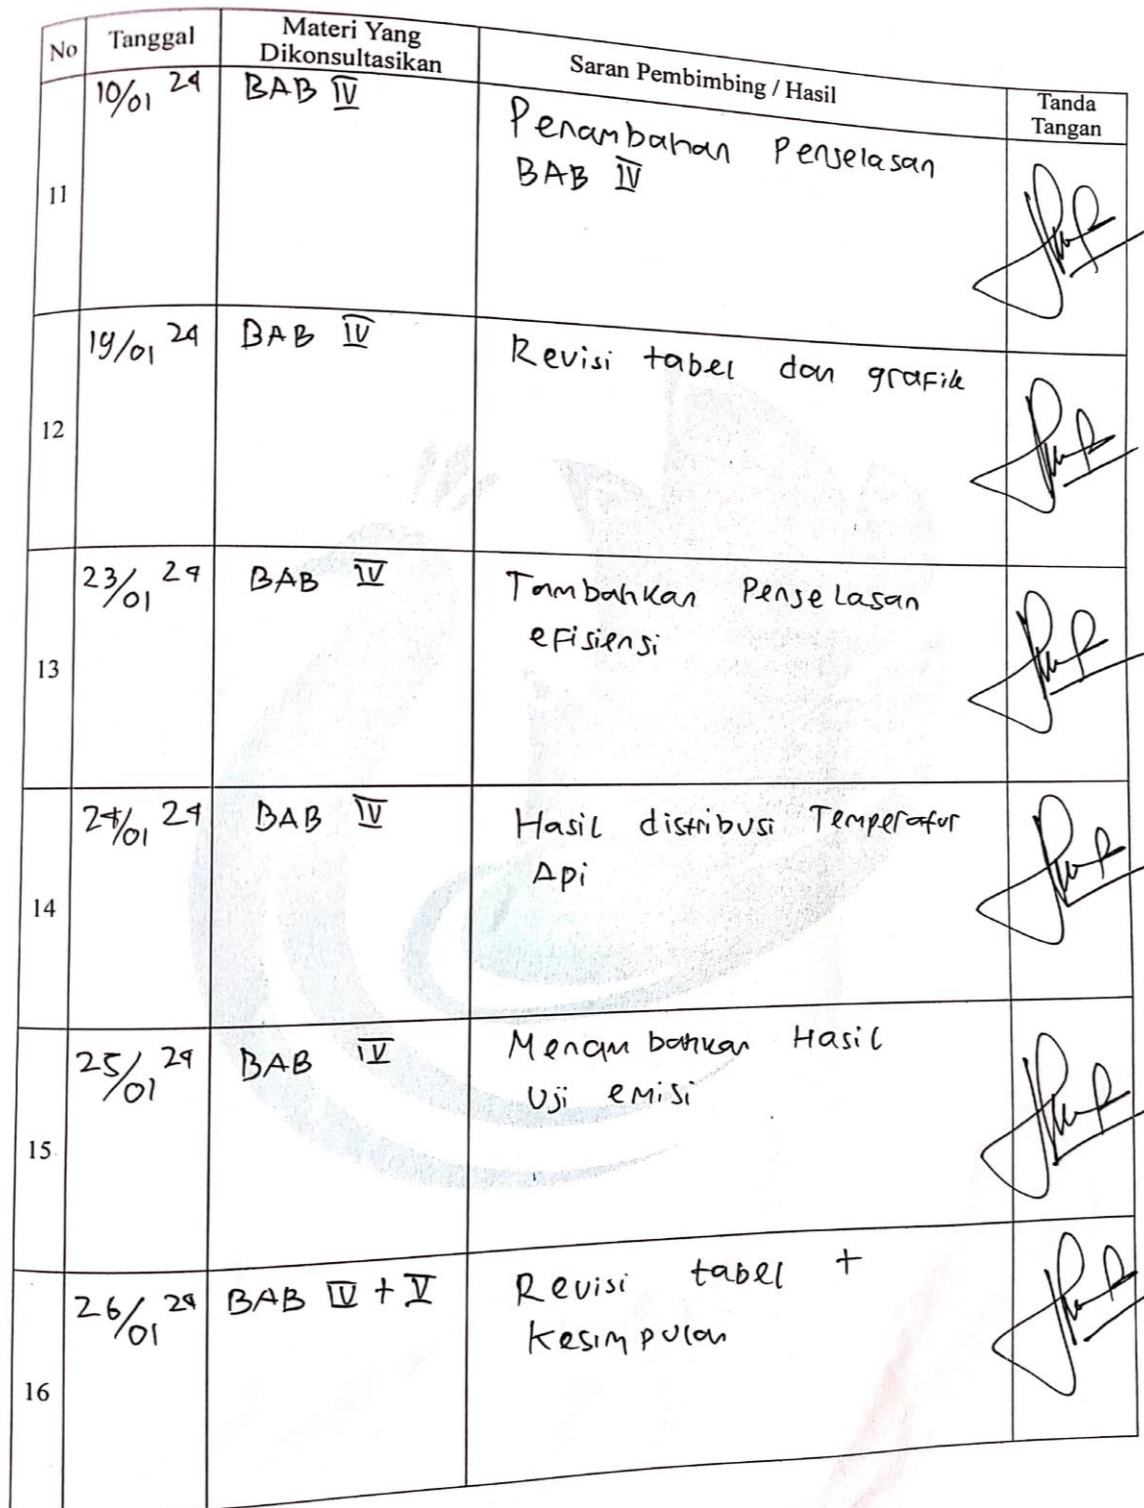 No Tanggal Materi Yang Dikonsultasikan Saran Pembimbing / Hasil Tanda Tangan
11 10/01 24 BAB IV Penambahan Penjelasan
BAB IV
12 19/01 24 BAB IV Revisi tabel dan grafik
13 23/01 24 BAB IV Tambahkan Penjelasan
efisiensi
14 24/01 24 BAB IV Hasil distribusi Temperatur
Api
15 25/01 24 BAB IV Menambahkan Hasil
Uji emisi
16 26/01 24 BAB IV + V Revisi tabel +
Kesimpulan